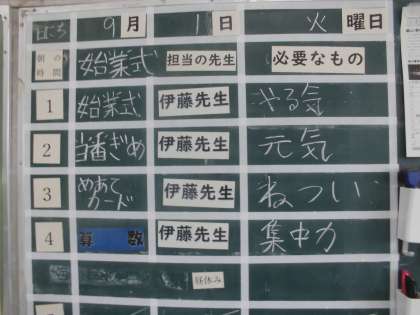 日にち 9月 1日 火曜日
朝の時間 始業式 担当の先生 必要なもの
1 始業式 伊藤先生 やる気
2 当番ぎめ 伊藤先生 元気
3 めあてカード 伊藤先生 ねつい
4 算数 伊藤先生 集中力
昼休み